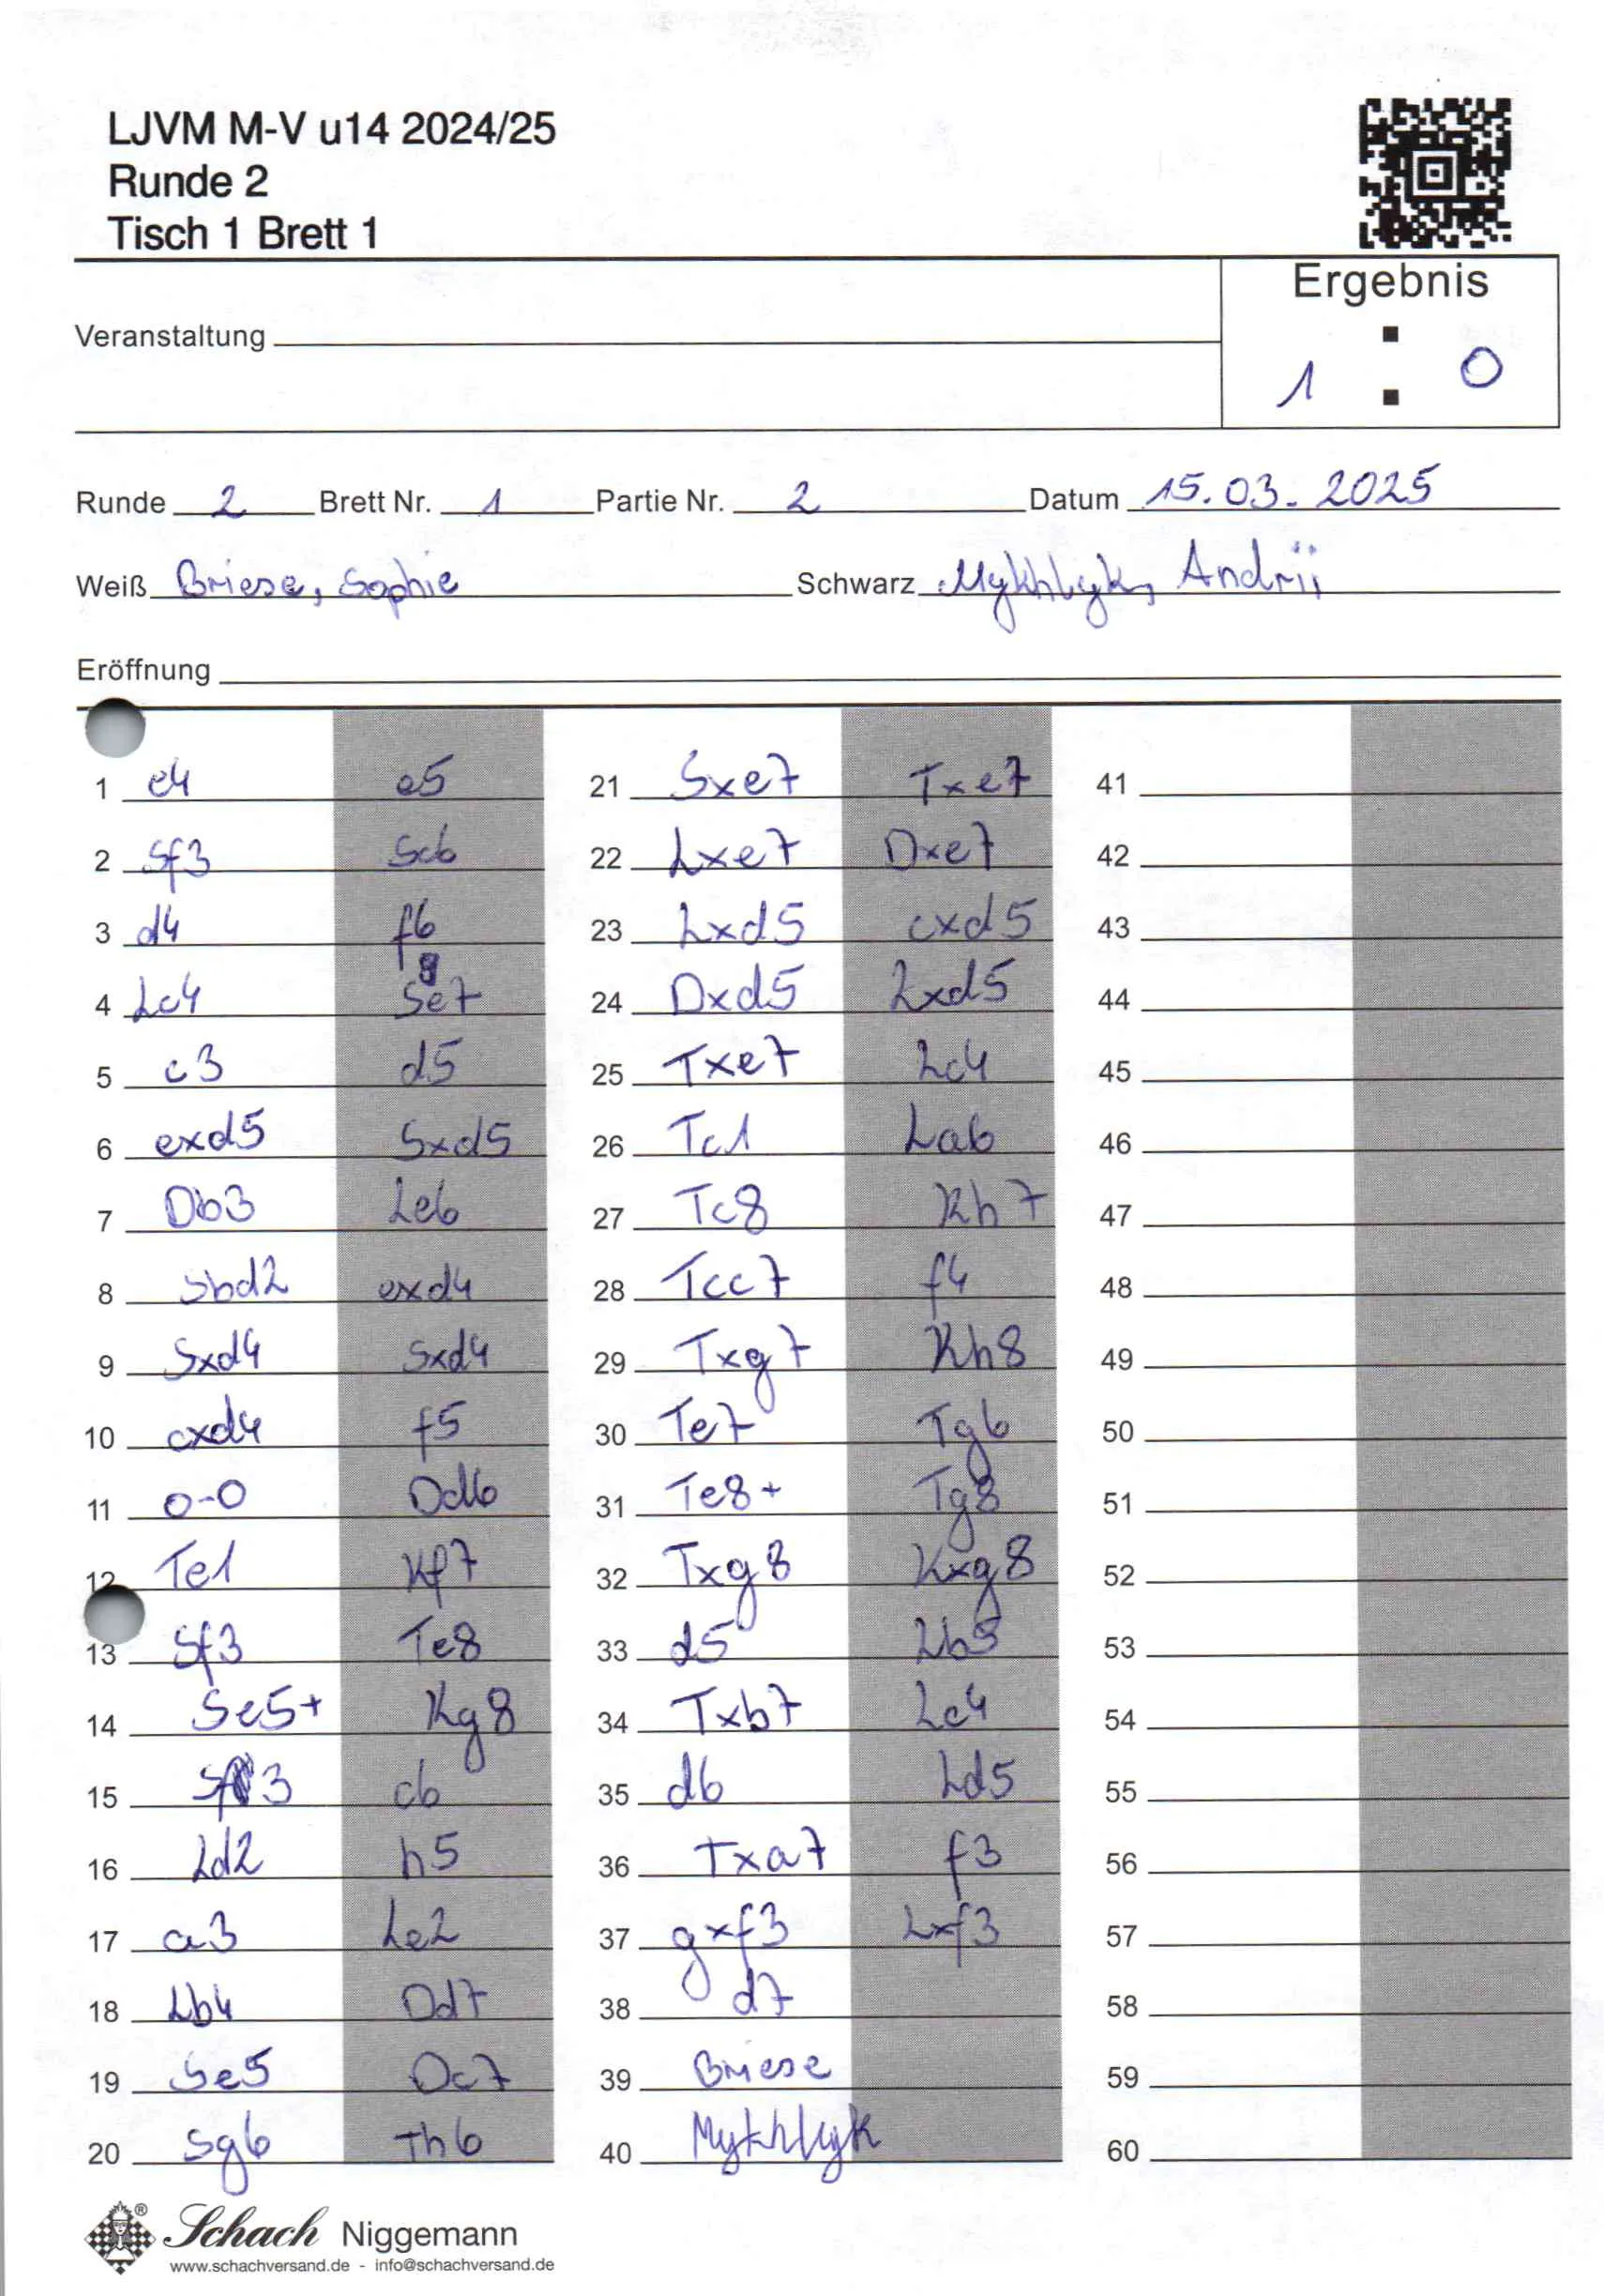 LJVM M-V u14 2024/25
Runde 2
Tisch 1 Brett 1
Ergebnis
Veranstaltung
1 : 0
Runde 2 Brett Nr. 1 Partie Nr. 2 Datum 15.03.2025
Weiß Briese, Sophie Schwarz Mykhlyk, Andrii
Eröffnung
1 e4 e5
2 Sf3 Sc6
3 d4 f6
4 Lc4 Sge7
5 c3 d5
6 exd5 Sxd5
7 Db3 Le6
8 Sbd2 exd4
9 Sxd4 Sxd4
10 cxd4 f5
11 0-0 Dd6
12 Te1 Kf7
13 Sf3 Te8
14 Se5+ Kg8
15 Sf3 c6
16 Ld2 h5
17 a3 Le7
18 Lb4 Dd7
19 Se5 Dc7
20 Sg6 Th6
21 Sxe7 Txe7
22 Lxe7 Dxe7
23 Lxd5 cxd5
24 Dxd5 Lxd5
25 Txe7 Lc4
26 Tc1 La6
27 Tc8 Kh7
28 Tcc7 f4
29 Txg7 Kh8
30 Te7 Tg6
31 Te8+ Tg8
32 Txg8 Kxg8
33 d5 Lb5
34 Txb7 Lc4
35 d6 Ld5
36 Txa7 f3
37 gxf3 Lxf3
38 d7
39 Briese
40 Mykhlyk
41
42
43
44
45
46
47
48
49
50
51
52
53
54
55
56
57
58
59
60
Schach Niggemann
www.schachversand.de - info@schachversand.de